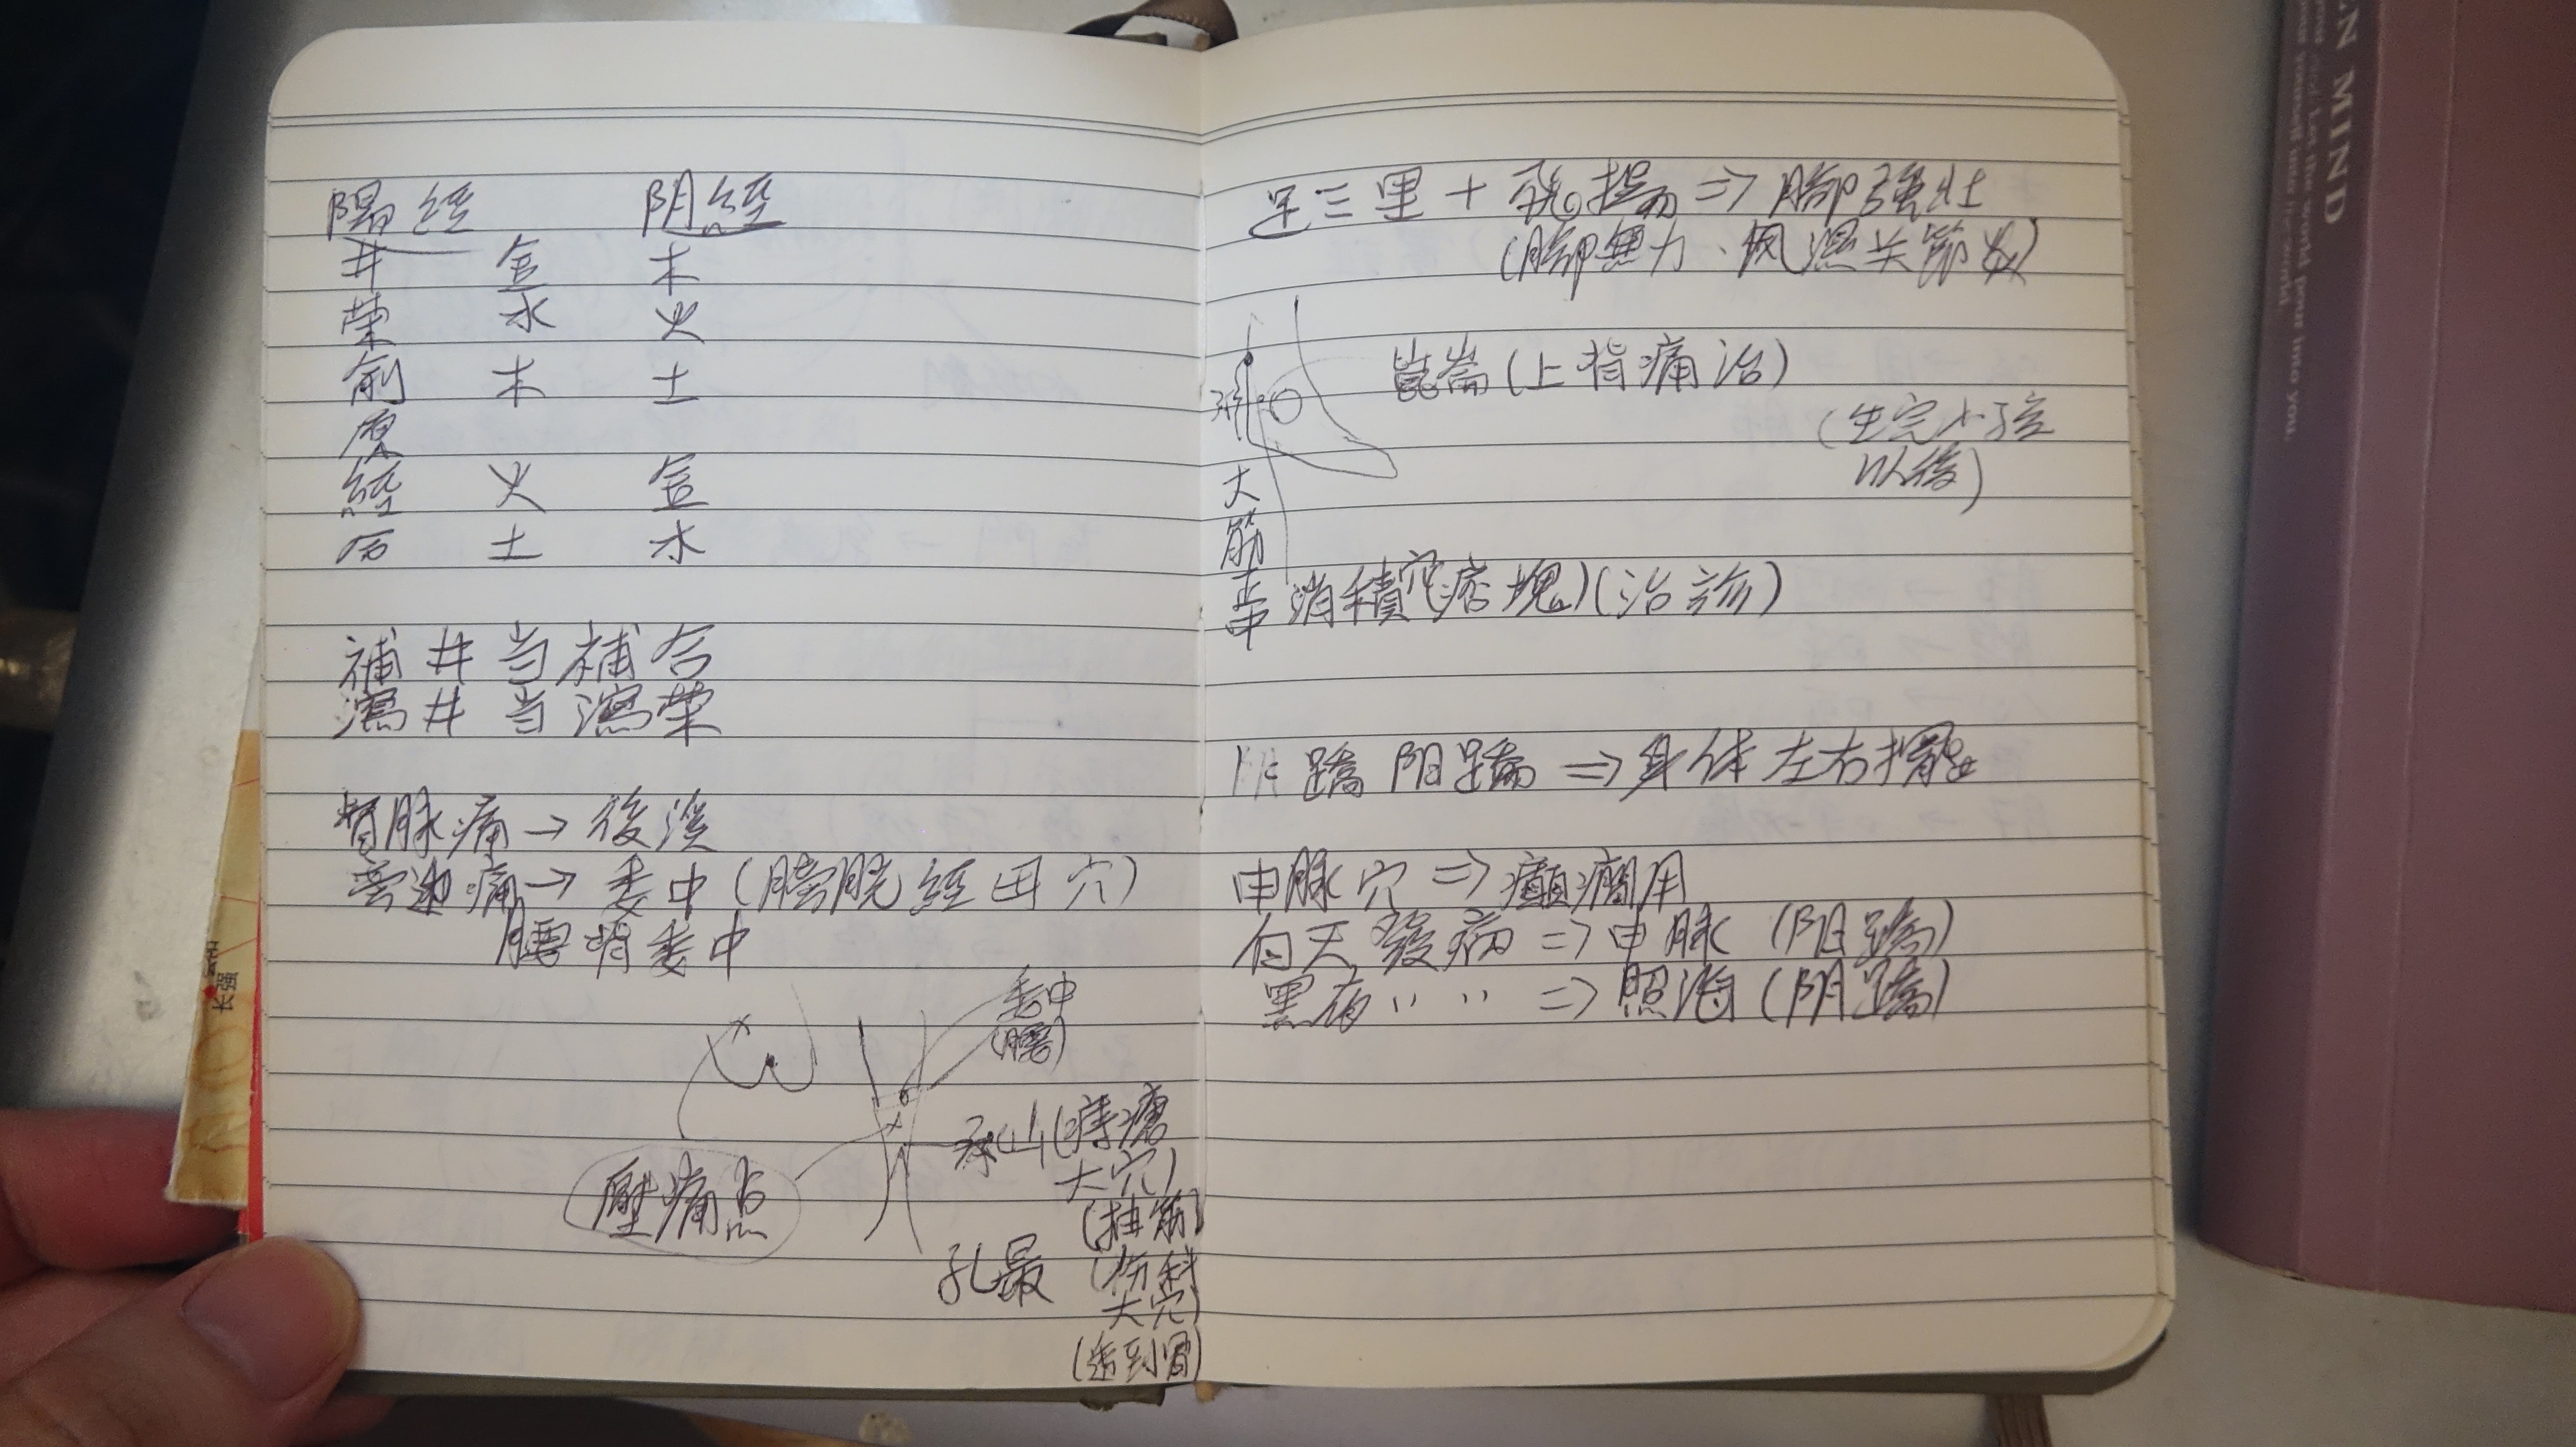 陽經 阴經
井 金 木
荣 水 火
俞 木 土
原
經 火 金
合 土 水
補井当補合
瀉井当瀉荣
督脉痛→後溪
旁边痛→委中(膀胱經 穴)
腰背委中
委中
(腰)
承山(痔瘡
大穴)
(抽筋)
壓痛点
孔最 (伤科
大穴)
(透到骨)
长强
足三里+ ⇒腳強壮
(腳無力、风濕关節炎)
崑崙(上背痛治)
(生完小孩
以後)
大
筋
正
中
消積穴(痞塊)(治診)
蹻 阳蹻⇒身体左右擺
申脉穴⇒癲癇用
白天發病⇒申脉(阳蹻)
黑夜〃〃⇒照海(阴蹻)
EN MIND
Let the world pour into you.